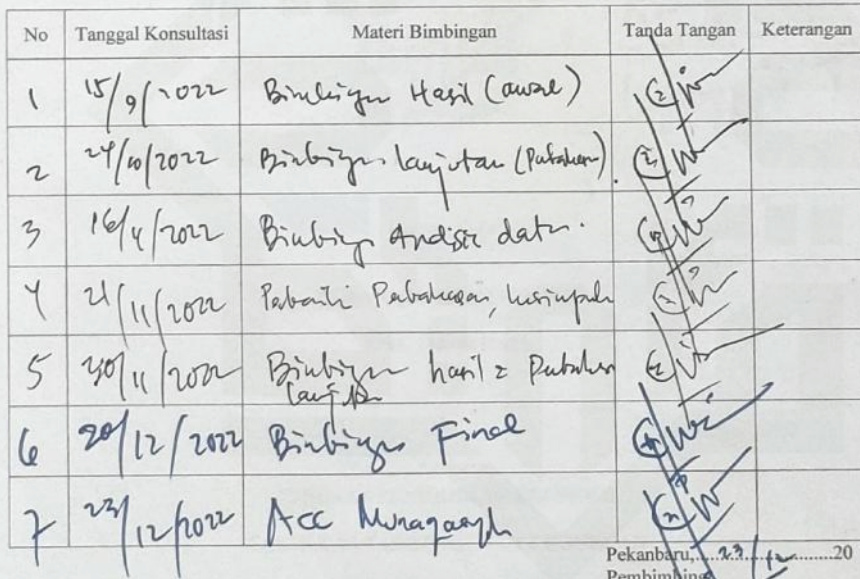 No Tanggal Konsultasi Materi Bimbingan Tanda Tangan Keterangan
1 15/9/2022 Bimbingan Hasil (awal)
2 24/10/2022 Bimbingan lanjutan
3 2022 Bimbingan Analisis data.
4 21/11/2022
5 30/11/2022 Bimbingan hasil
lanjutan
6 20/12/2022 Bimbingan Final
7 23/12/2022 ACC Munaqasyah
Pekanbaru, 23/12 20
Pembimbing